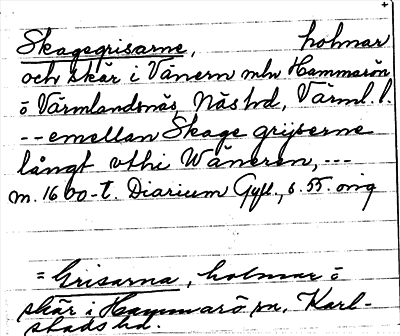 Skagegrisarne, holmar
och skär i Vänern mln Hammarön
o Värmlandsnäs, Näs hd, Värml. l.
-- emellan Skage grijserne
långt vthi Wäneren, ---
m. 1600-t. Diarium Gyll., s. 55. orig
= Grisarna, holmar o
skär i Hammarö sn, Karl-
stads hd.